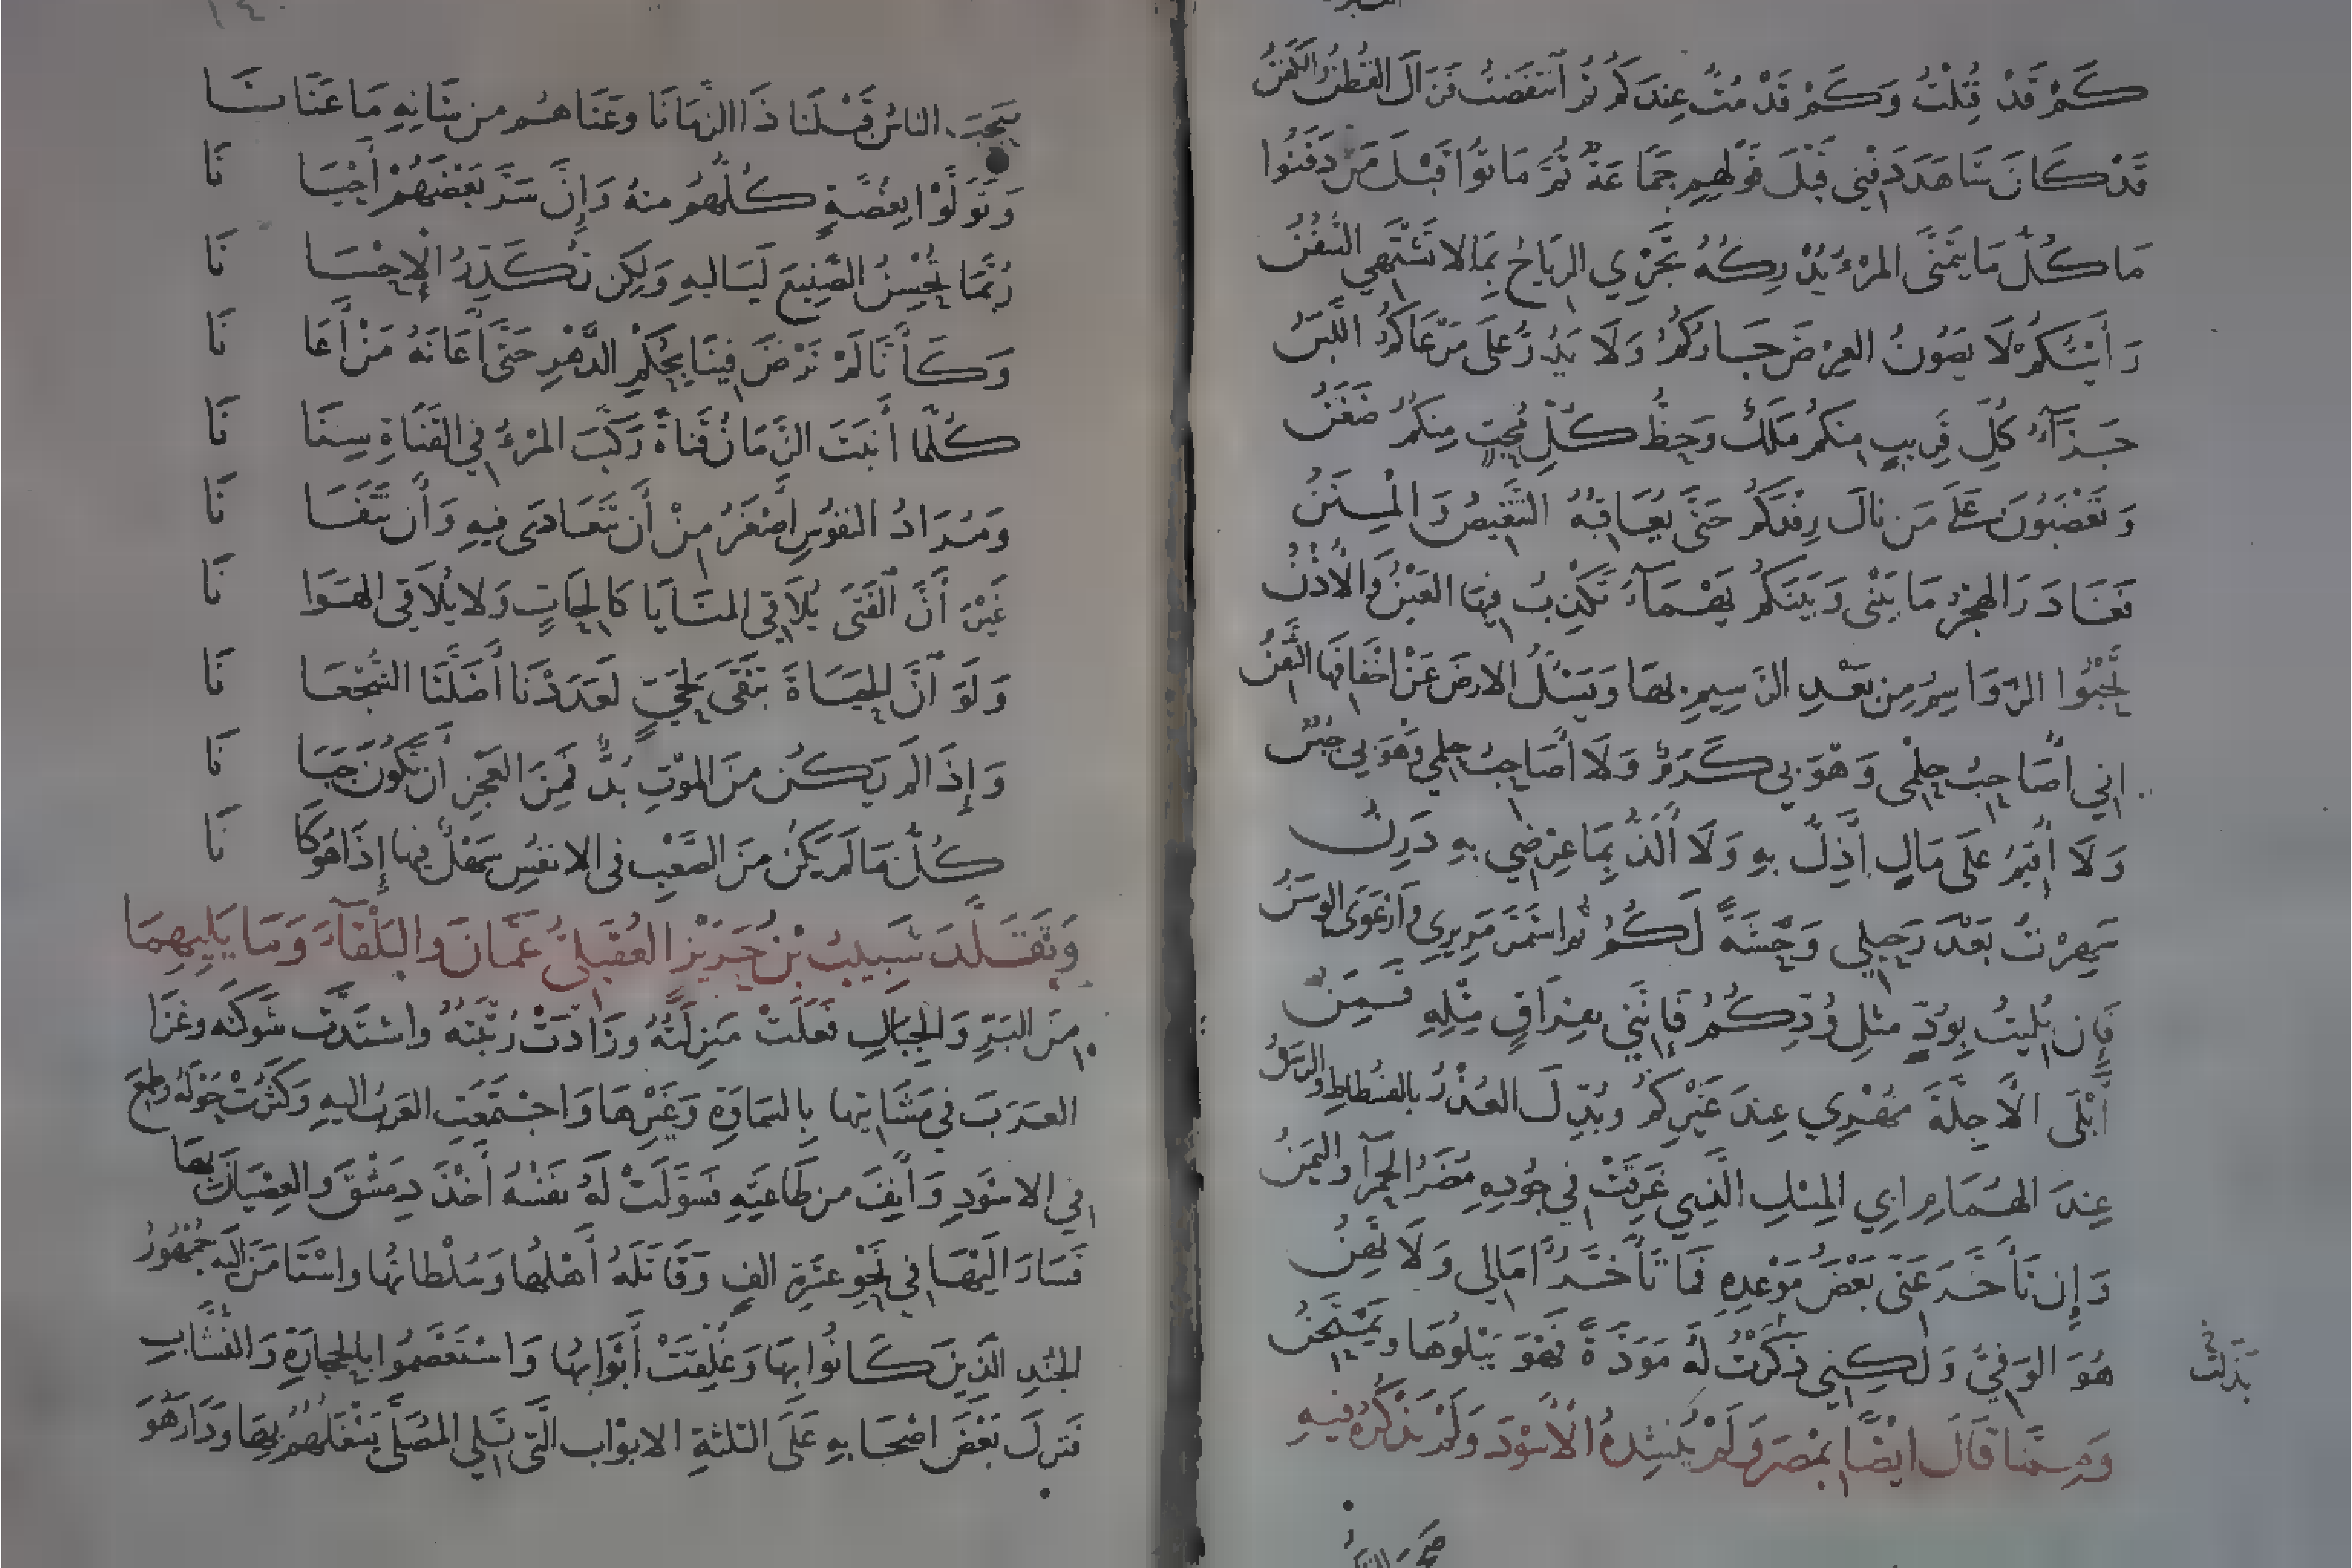 كَمْ قَدْ قُتِلْتُ وَكَمْ قَدْ مُتُّ عِندَكُمُ ثُمَّ اَنْتَفَضْتُ فَزَالَ القُطْنُ وَالكَفَنُ
قَدْ كَانَ شَاهَدَ دَفْنِي قَبْلَ قَوْلِهِمِ جَمَاعَةٌ ثُمَّ مَاتُوا قَبْلَ مَن دَفَنُوا
مَا كُلُّ مَا يَتَمَنَّى المَرْءُ يُدْرِكُهُ تَجْرِي الرِيَاحُ بِمَا لا تَشْتَهِي السُّفُنُ
رَأَيْتُكُمْ لَا يَصُونُ العِرْضَ جَارُكُمُ وَلَا يَدُرُّ عَلَى مَرْعَاكُمُ اللَّبَنُ
جَزَآءُ كُلِّ قَرِيبٍ مِنكُمُ مَلَلٌ وَحَظُّ كُلِّ مُحِبٍّ مِنكُمُ ضَغَنُ
وَتَغْضَبُونَ عَلَى مَن نالَ رِفْدَكُمُ حَتَّى يُعَاقِبَهُ التَّنْغِيصُ وَالْمِنَنُ
فَغَادَرَ الهَجْرُ مَا بَيْنِي وَبَيْنَكُمُ يَهْمَآءَ تَكْذِبُ فِيهَا العَيْنُ وَالْأُذُنُ
تَحْبُوا الرَّوَاسِمُ مِن بَعْدِ الرَسِيمِ بِهَا وَيَسْئَلُ الارضَ عَنْ اَخْفَافِهَا الثَّفِنُ
اِنِي أُصَاحِبُ حِلْمِى وَهْوَ بِي كَرَمٌ وَلَا أُصَاحِبُ حِلْمِي وَهْوَ بِي جُبُنُ
وَلَا أُقِيمُ عَلَى مَالٍ أَذِلُّ بِهِ وَلَا أَلَذُّ بِمَا عِرْضِي بِهِ دَرِنُ
سَهِرْتُ بَعْدَ رَحِيلِي وَحْشَةً لَكُمُ ثُمَّ اسْتَمَرَّ مَرِيرِي وَاَرْعَوَى الوَسَنُ
فَإِن بُلِيتُ بِوُدٍّ مثلِ وُدِّكُمُ فَإِنَّنِي بِفِرَاقٍ مِثْلِهِ قَمِنُ
أَبْلَى الْأَجِلَّةَ مُهْرِي عِندَ غَيْرِكُمُ وبُدِّلَ العُذْرُ بالفُسْطَاطِ وَالرَسَنُ
عِندَ الهُمَامِ ابِي المِسْكِ الَّذِي غَرِقَتْ فِي جُودِهِ مُضَرُ الحَمْرَآ وَاليَمَنُ
وَإِن تَأَخَّرَ عَنِّى بَعْضُ مَوْعِدِهِ فَمَا تَأَخَّرُ اَمَالِي وَلَا تَهِنُ
هُوَ الوَفِيُّ وَلَكِنِي ذَكَرْتُ لَهُ مَوَدَّةً فَهْوَ يَبْلُوهَا وَيَمْتَحِنُ
وَمِمَّا قَالَ ايْضًا بِمْصَرَ وَلَمْ يُنشِدْهُ الْأَسْوَدَ وَلَمْ يَذْكُرْهُ فِيهِ
صَحِبَ الناسُ قَبْلَنَا ذَا الزَّمَانَا وعَنَاهُم من شَانِهِ مَا عَنَانَا
وَتَوَلَّوْا بِغُصَّةٍ كُلُّهُم منهُ وَإِن سَرَّ بَعْضَهُمْ أَحْيَانَا
رُبَّمَا تُحْسِنُ الصَّنِيعَ لَيَالِيهِ وَلَكِن تُكَدِّرُ الْإِحْسَانَا
وَكَأَنَّا لَمْ نَرْضَ فِينَا بِحُكْمِ الدَّهْرِ حَتَّى أَعَانَهُ مَنْ أَعَانَا
كُلَّمَا أَنبَتَ الزَّمَانُ قَنَاةً رَكَّبَ المَرْءُ فِي القَنَاةِ سِنَانَا
وَمُرَادُ النفُوسِ أَصْغَرُ مِنْ أَن نَتَعَادَى فِيهِ وَأَن نَتَفَانَا
غَيْرَ أَنَّ الفَتَى يُلَاقِي المنَايَا كَالِحَاتٍ وَلا يُلَاقِي الهَوَانَا
وَلَوَ اَنَّ الحَيَاةَ تَبْقَى لِحَيٍّ لَعَدَدْنَا أَضَلَّنَا الشُّجْعَانَا
وَإِذَا لَم يَكُن مِنَ المَوْتِ بُدٌّ فَمِنَ العَجْزِ أَن تَكُونَ جَبَانَا
كُلُّ مَا لَم يَكُنْ مِنَ الصَّعْبِ فِى الانفُسِ سَهْلٌ فِيها إِذَا هُوَ كَانَا
وَتَقَلَّدَ شَبِيبُ بْنُ جَرِيْرٍ العُقَيْلِيُّ عَمَّانَ وَالبَلْقَآءَ وَمَا يَلِيهِمَا
مِنَ البَرِّ وَالْجِبَالِ فَعَلَتْ مَنزِلَتُهُ وزَادَتْ رُتْبَتُهُ واشتَدَّت شَوكَتُه وغَزَا
العَرَبَ فِي مَشَاتِيها بِالسَمَاوَةِ وَغَيْرِهَا وَاجْتَمَعَتِ العَرَبُ اليهِ وَكَثُرَتْ حَوْلَهُ وطَمِعَ
فِي الاسْوَدِ وَأَنِفَ من طَاعَتِهِ فَسَوَّلَتْ لَهُ نَفْسُهُ أَخْذَ دِمَشْقَ والعِصْيَانَ بِهَا
فَسَارَ الَيْهَا فِي نَحْوِ عَشَرَةِ الفٍ وَقَاتَلَهُ أَهْلُهَا وَسُلْطانُهَا واسْتَامَنَ اليهِ جُمْهُورُ
الجُندِ الَّذِينَ كَانُوا بِهَا وَغُلِّقَتْ أَبْوَابُهَا وَاسْتَعْصَمُوا بِالحِجَارَةِ وَالنُّشَّابِ
فَنَزَلَ بَعْضُ اصْحَابِهِ عَلَى الثلثةِ الابوَاب الَّتِى تَلِي المُصَلَّى يَشْغَلُهُمْ بِهَا وَدَارَ هُوَ